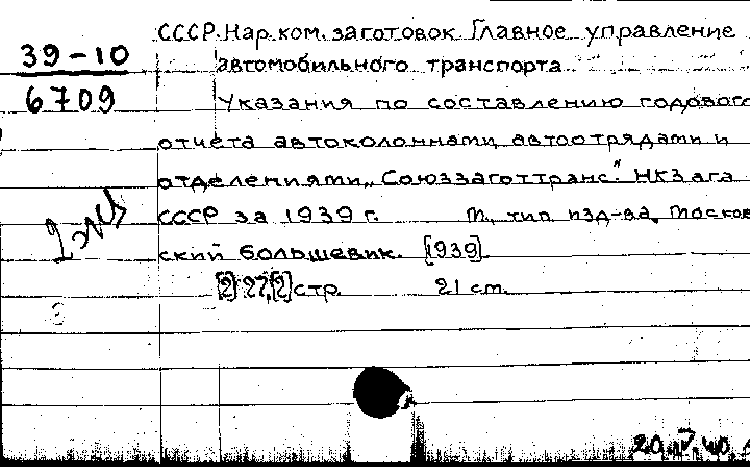 СССР. Нар. ком. заготовок Главное управление
39-10
автомобильного транспорта.
6709
Указания по составлению годового
отчета автоколоннами, автоотрядами и
отделениями „Союззаготтранс" НКЗага
СССР за 1939 г. М, тип. изд-ва „Москов
ский большевик. [1939].
[2] 27, [2] стр. 21 см.
2 экз